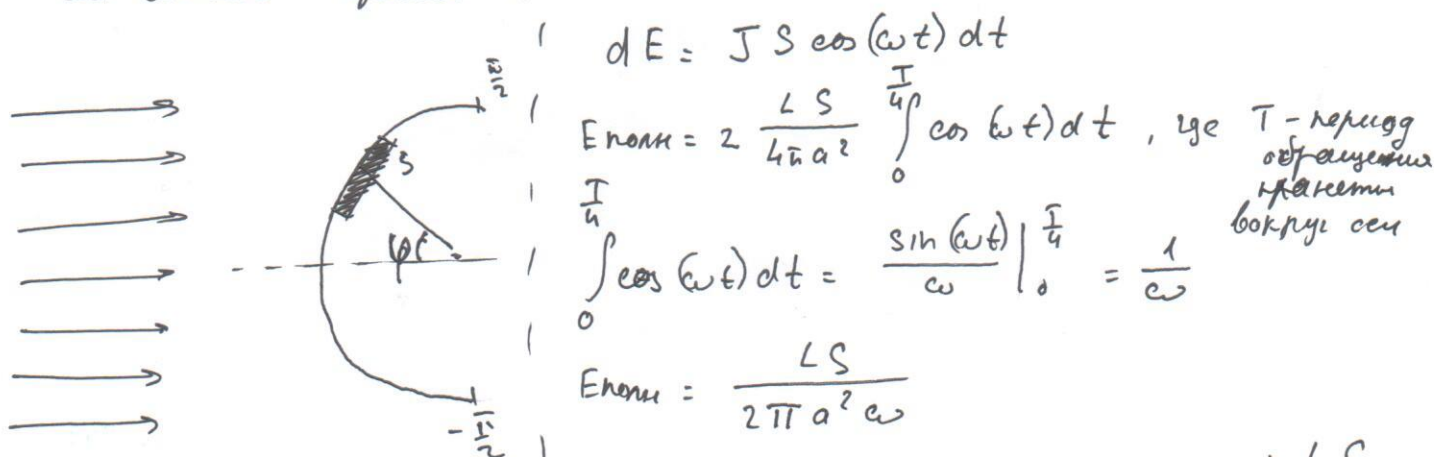 dE = J S cos(ωt) dt
Eполн = 2 LS/4πa² ∫₀^(T/4) cos(ωt) dt, где T - период
обращения
планеты
вокруг оси
∫₀^(T/4) cos(ωt) dt = sin(ωt)/ω |₀^(T/4) = 1/ω
Eполн = LS/2πa²ω
π/2
S
φ
-π/2
LS